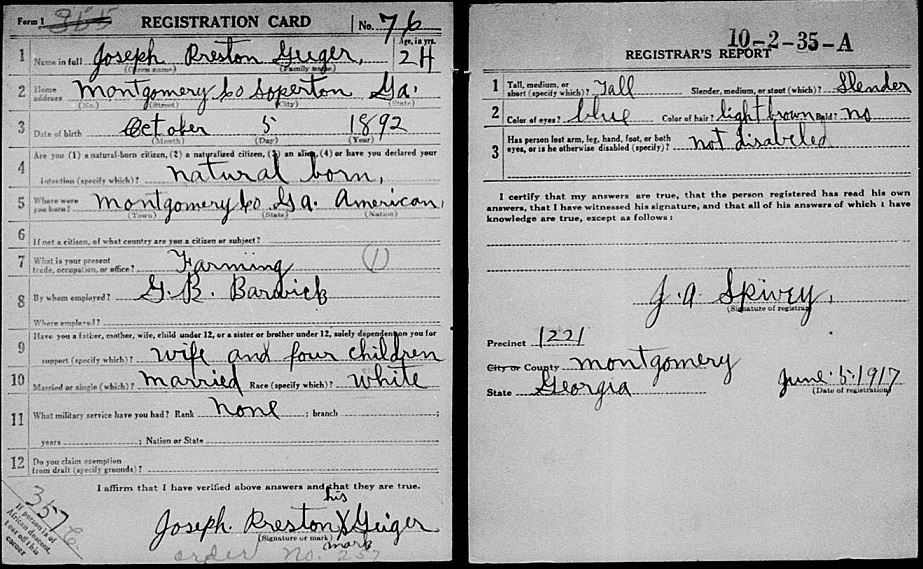 Form 1 REGISTRATION CARD No. 76
1 Name in full Joseph Preston Geiger, Age, in yrs. 24
(Given name) (Family name)
2 Home address Montgomery Co Soperton Ga.
(No.) (Street) (City) (State)
3 Date of birth October 5 1892
(Month) (Day) (Year)
4 Are you (1) a natural-born citizen, (2) a naturalized citizen, (3) an alien, (4) or have you declared your
intention (specify which)? natural born,
5 Where were you born? Montgomery Co Ga. American,
(Town) (State) (Nation)
6 If not a citizen, of what country are you a citizen or subject?
7 What is your present trade, occupation, or office? Farming (1)
8 By whom employed? G. B. Barwick
Where employed?
9 Have you a father, mother, wife, child under 12, or a sister or brother under 12, solely dependent on you for
support (specify which)? wife and four children
10 Married or single (which)? married Race (specify which)? white
11 What military service have you had? Rank none ; branch ;
years ; Nation or State
12 Do you claim exemption from draft (specify grounds)?
I affirm that I have verified above answers and that they are true.
his
Joseph. Preston X Geiger
(Signature or mark) mark
order no.
3576
If person is of
African descent,
tear off this
corner
10-2-35-A
REGISTRAR'S REPORT
1 Tall, medium, or short (specify which)? Tall Slender, medium, or stout (which)? Slender
2 Color of eyes? blue Color of hair? light brown Bald? no
3 Has person lost arm, leg, hand, foot, or both
eyes, or is he otherwise disabled (specify)? not disabeled
I certify that my answers are true, that the person registered has read his own
answers, that I have witnessed his signature, and that all of his answers of which I have
knowledge are true, except as follows:
J. A. Spivey,
(Signature of registrar)
Precinct 1221
City or County Montgomery
State Georgia June. 5. 1917
(Date of registration)